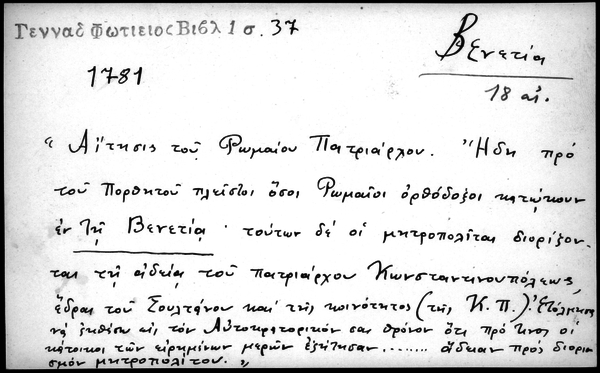 Γενναδ Φωτιειος Βιβλ 1 σ. 37
Βενετία
1781
18 αἰ.
«Αἴτησις τοῦ Ρωμαίου Πατριάρχου. "Ἤδη πρό
τοῦ Πορθητοῦ πλεῖστοι ὅσοι Ρωμαῖοι ὀρθόδοξοι κατῴκουν
ἐν τῇ Βενετίᾳ· τούτων δέ οἱ μητροπολῖται διορίζον-
ται τῇ ἀδείᾳ τοῦ πατριάρχου Κωνσταντινουπόλεως,
ἕδρας τοῦ Σουλτάνου καί τῆς κοινότητος (τῆς Κ.Π.). Ἐτόλμησα
νά ἐκθέσω εἰς τόν Αὐτοκρατορικόν σας θρόνον ὅτι πρό τινος οἱ
κάτοικοι τῶν εἰρημένων μερῶν ἐζήτησαν........ ἄδειαν πρός διορι-
σμόν μητροπολίτου.»